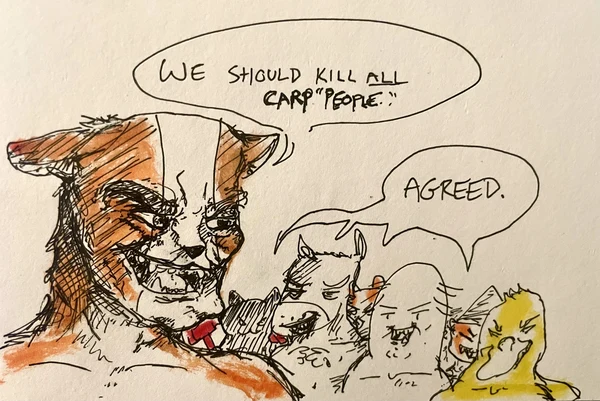 WE SHOULD KILL ALL
CARP "PEOPLE."
AGREED.